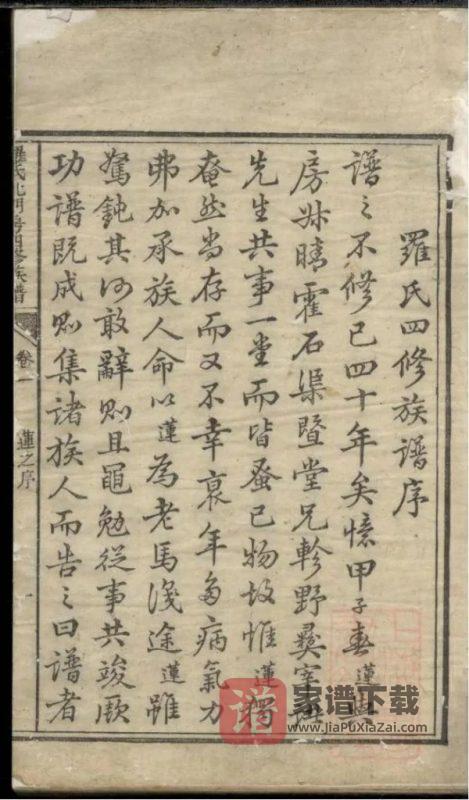 羅氏四修族譜序
譜之不修已四十年矣憶甲子春蓮與
房叔晴霍石渠暨堂兄軫野彛室
先生共事一堂而皆蚤已物故惟蓮獨
奄然尚存而又不幸衰年多病氣力
弗加承族人命以蓮為老馬識途蓮雖
駑鈍其何敢辭則且黽勉從事共竣厥
功譜既成則集諸族人而告之曰譜者
羅氏北門房四修族譜
卷一
蓮之序
一
家谱下载
www.JiaPuXiaZai.com